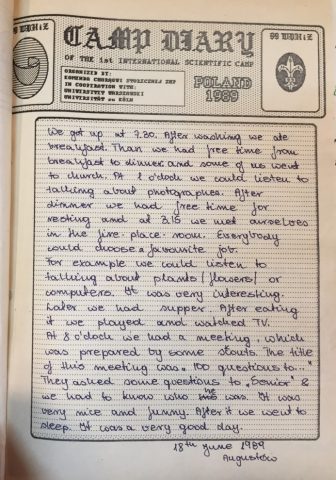 99 WDHiZ
99 WDHiZ
CAMP DIARY
OF THE 1st INTERNATIONAL SCIENTIFIC CAMP
ORGANIZED BY:
KOMENDA CHORĄGWI STOŁECZNEJ ZHP
IN COOPERATION WITH:
UNIWERSYTET WARSZAWSKI
UNIVERSITÄT zu KÖLN
POLAND
1989
We got up at 7.30. After washing we ate
breakfast. Than we had free time from
breakfast to dinner and some of us went
to church. At 1 o'clock we could listen to
talking about photographes. After
dimmer we had free time for
resting and at 3.15 we met ourselves
in the fire-place-room. Everybody
could choose a favourite job.
For example we could listen to
talking about plants /flowers/ or
computers. It was very interesting.
Later we had supper. After eating
it we played and watched TV.
At 8 o'clock we had a meeting, which
was prepared by some scouts. The title
of this meeting was „100 questions to..."
They asked some questions to „Senior" &
we had to know who he was. It was
very nice and funny. After it we went to
sleep. It was a very good day.
18th June 1989
Augustów